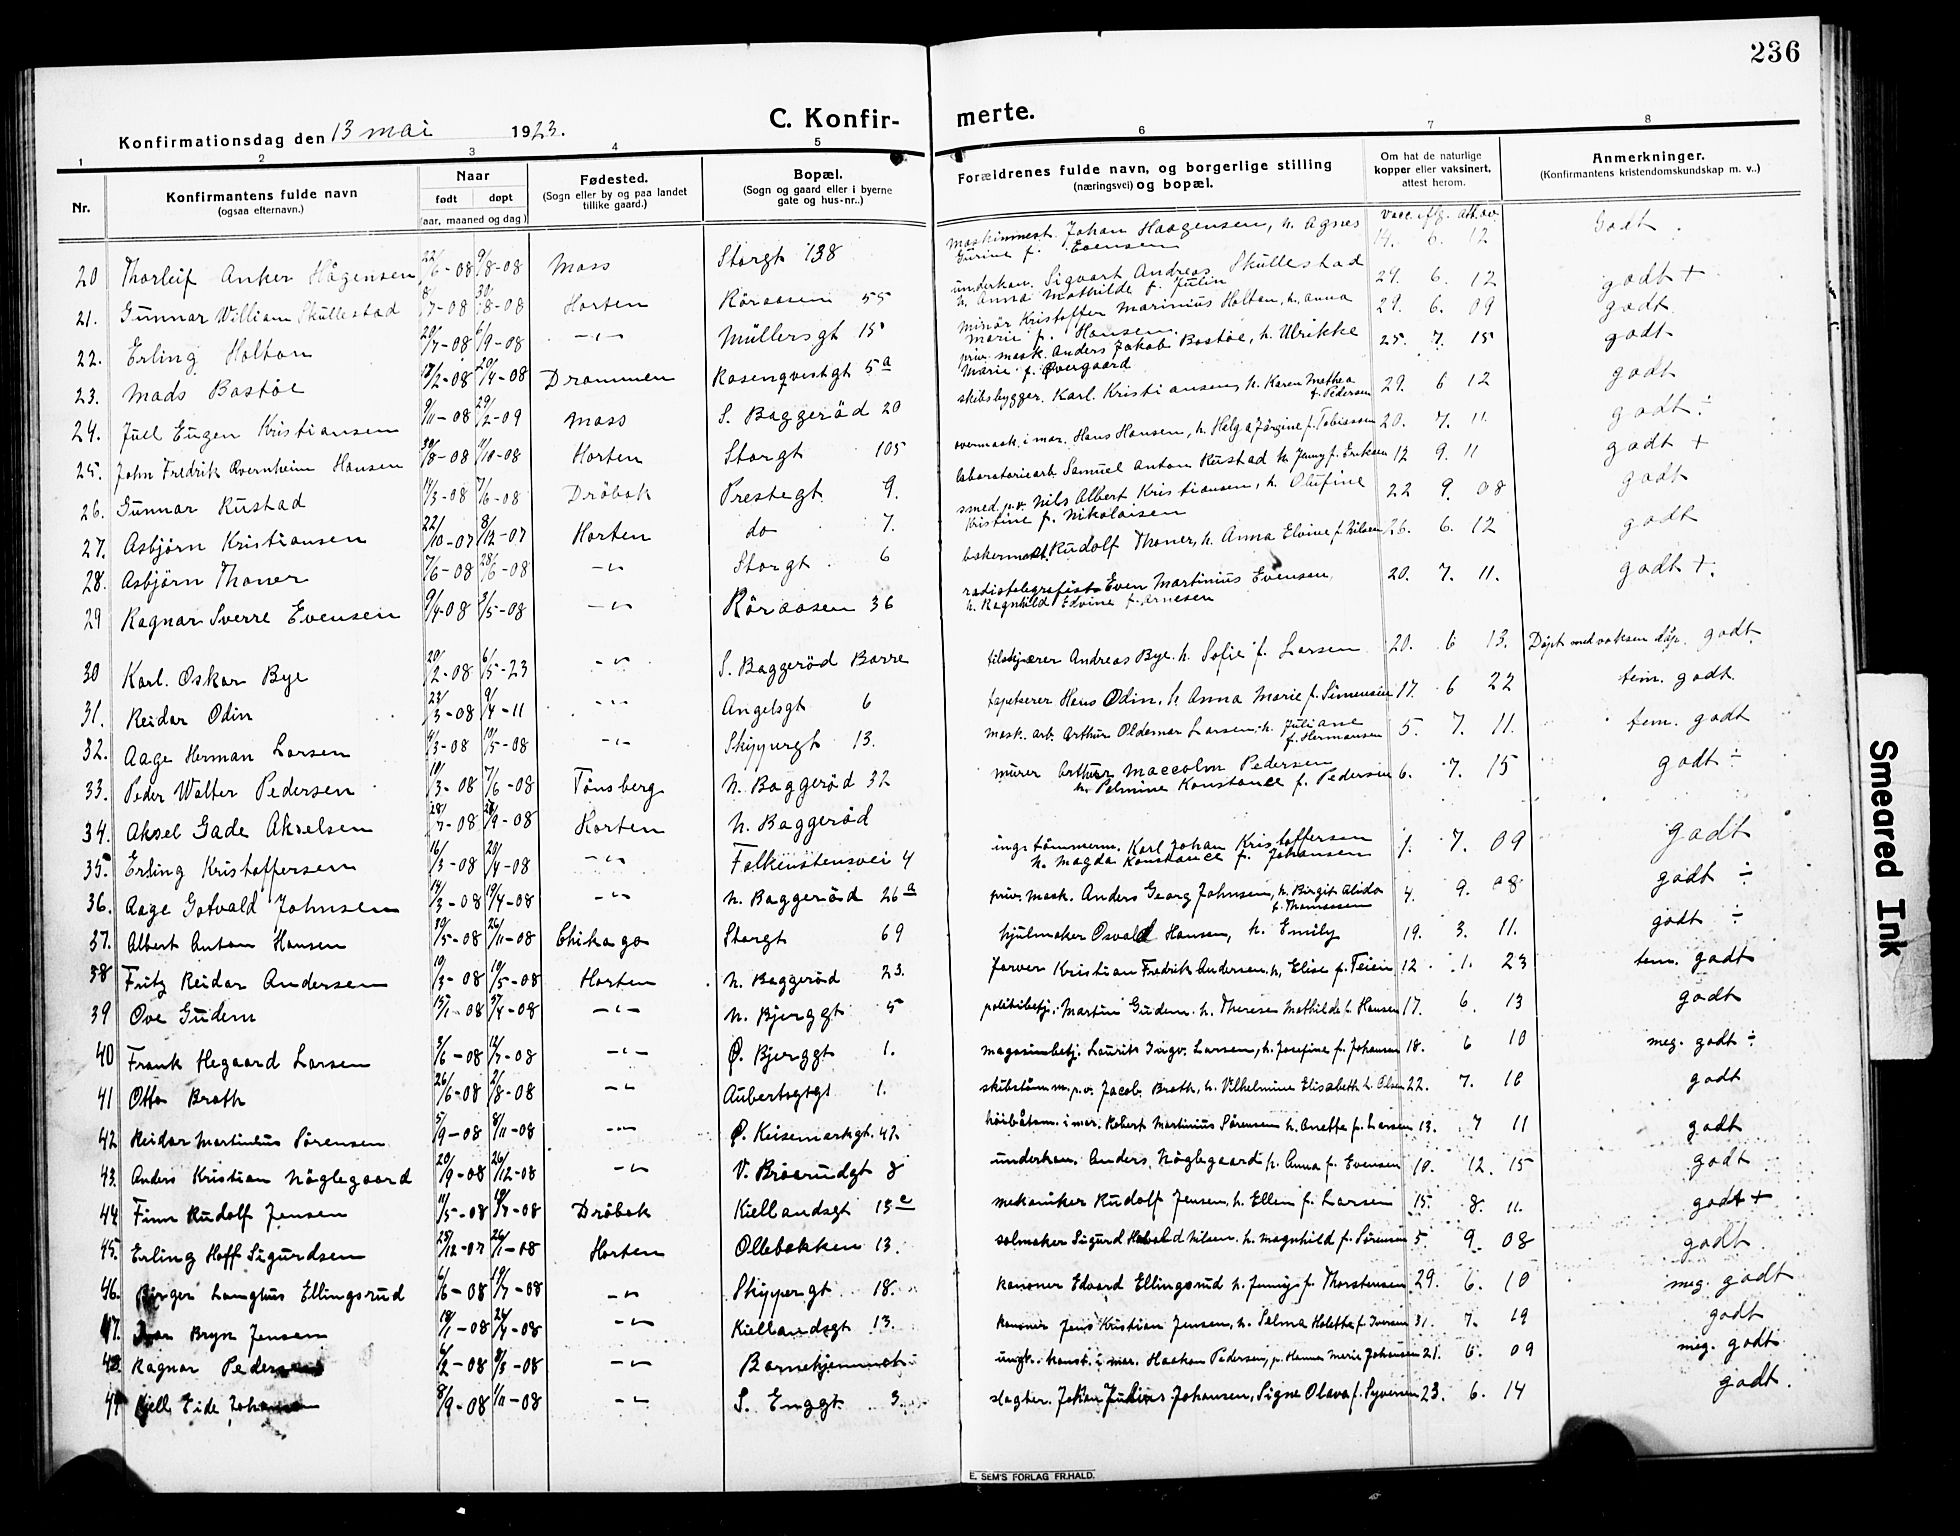 236
Konfirmationsdag den 13 mai 1923.
C. Konfirmerte.
1 2 3 4 5 6 7 8
Nr.
Konfirmantens fulde navn
(ogsaa efternavn.)
Naar
født døpt
(aar, maaned og dag)
Fødested.
(Sogn eller by og paa landet
tillike gaard.)
Bopæl.
(Sogn og gaard eller i byerne
gate og hus-nr..)
Forældrenes fulde navn, og borgerlige stilling
(næringsvei) og bopæl.
Om hat de naturlige
kopper eller vaksinert,
attest herom.
Anmerkninger.
(Konfirmantens kristendomskundskap m. v..)
20 Thorleif Anker Hågensen 22/6-08 9/8-08 Moss Storgt 138 Maskinmest. Johan Haagensen, h. Agnes Gurine f. Evensen 14. 6. 12 Godt.
21. Gunnar William Skullestad 8/7-08 30/8-08 Horten Røraasen 55 underkan. Sigvart Andreas Skullestad h. Anna Mathilde f. Julin 24. 6. 12 godt +
22. Erling Holton 20/7-08 6/9-08 -"- Müllersgt 15 Minør Kristoffer Marinius Holton, h. Anna Marie f. Hansen. 29. 6. 09 godt
23. Mads Bastøe 12/2-08 20/4-08 Drammen Rosenqvistgt 5a priv. mask. Anders Jakob Bastøe, h. Ulrikke Marie f. Øvergaard 25. 7. 15 godt
24. Juel Eugen Kristiansen 9/11-08 29/2-09 Moss S. Baggerød 20 skibsbygger. Karl. Kristiansen, h. Karen Mathea f. Pedersen 29. 6 12 godt
25. John Fredrik Avernheim Hansen 30/8-08 11/10-08 Horten Storgt 105 overmask. i mar. Hans Hansen, h. Helga Jørgine f. Tobiassen 20. 7. 11. godt ÷
26. Gunnar Rustad 14/3-08 7/6-08 Drøbak Prestegt. 9. laboratoriearb. Samuel Anton Rustad h. Jenny f. Eriksen 12 9. 11 godt +
27. Asbjørn Kristiansen 22/10-07 8/12-07 Horten do 7. smed. p.v. Nils Albert Kristiansen, h. Olufine Kristine f. Nikolaisen 22 9. 08 godt
28. Asbjørn Thoner 7/6-08 28/6-08 -"- Storgt. 6 bakermest. Rudolf Thoner, h. Anna Elvine f. Nilsen 26. 6. 12 godt
29 Ragnar Sverre Evensen 9/4-08 3/5-08 -"- Røraasen 36 radiotelegrafist Even Martinius Evensen, h. Ragnhild Edvine f. Arnesen 20. 7. 11. godt +.
30 Karl. Oskar Bye 20/2-08 6/5-23 -"- S. Baggerød Borre Andreas Bye. h. Sofie f. Larsen 20. 6 13. Døpt ved voksen dåp. godt.
31. Reidar Odin 23/3-08 9/4-11 -"- Angelsgt 6 tapetserer Hans Odin, h. Anna Marie f. Simensen 17. 6 22 tem. godt.
32. Aage Herman Larsen 4/3-08 10/5-08 -"- Skippergt 13. mask. arb. Arthur Oldemar Larsen, h. Juliane f. Hermansen 5. 7. 11. tem. godt
33. Peder Walter Pedersen 10/3-08 7/6-08 Tønsberg N. Baggerød 32 murer Arthur Maccolm Pedersen h. Palmine Konstance f. Pedersen 6. 7. 15 godt ÷
34. Aksel Gade Akselsen 28/7-08 28/9-08 Horten N. Baggerød
35. Erling Kristoffersen 16/3-08 20/4-08 -"- Falkenstensvei 4 ingstømmerm. Karl Johan Kristoffersen h. Magda Konstance f. Johansen 1. 7. 09 godt
36. Aage Gotvald Johnsen 14/3-08 19/4-08 -"- N. Baggerød 26a priv. mask. Anders Georg Johnsen, h. Birgit Alida f. Thomassen 4. 9. 08 godt ÷
37. Albert Anton Hansen 30/5-08 26/11-08 Chikago Storgt 69 hjulmaker Osvald Hansen, h. Emily 19. 3. 11. godt ÷
38 Fritz Reidar Andersen 10/3-08 10/5-08 Horten N. Baggerød 23. farver Kristian Fredrik Andersen. h. Elise f. Teien 12. 1. 23 tem. godt
39 Ove Gudem 15/1-08 /4-08 -"- N. Bjerggt 5 politibetj. Martin Gudem. h. Therese Mathilde f. Hansen 17. 6. 13 godt
40 Frank Hegaard Larsen 3/6-08 12/7-08 -"- Ø. Bjerggt. 1. magasinbetj. Laurits Ingv. Larsen, h. Josefine f. Johansen 18. 6 10 meg. godt ÷
41 Otto Brath 26/6-08 2/8-08 -"- Aubertsgt 1. skibstøm. m. p.v. Jacob. Brath, h. Vilhelmine Elisabeth f. Olsen 22. 7. 10 godt
42 Reidar Martinius Sørensen 5/9-08 8/11-08 -"- Ø. Keisemarksgt. 42. høibåtsm. i mar. Robert Martinius Sørensen h. Anette f. Larsen 13. 7 11 godt
43. Anders Kristian Nøglegaard 20/9-08 26/12-08 -"- V. Braarudgt 8 underkan. Anders. Nøglegaard h. Anna f. Evensen 10. 12. 15 godt
44 Finn Rudolf Jensen 11/5-08 19/7-08 Drøbak Kiellandsgt 13c mekaniker Rudolf Jensen, h. Ellen f. Larsen 15. 8. 11. godt +
45. Erling Hoff Sigurdsen 25/12-07 26/1-08 Horten Ollebakken 13. solmaker Sigurd Nilsen. h. Magnhild f. Sørensen 5. 9. 08 godt.
46. Birger Langhus Ellingsrud 6/6-08 19/7-08 -"- Skippergt 18. kanoner Edvard Ellingsrud h. Jenny f. Thorstensen 29. 6. 10 meg. godt
47. Bryn Jensen 18/1-08 26/4-08 -"- Kiellandsgt 13. kanoner Jens Kristian Jensen, h. Selma f. Iversen 31. 7. 19 godt
48. Ragnar Pedersen 6/2-08 8/3-08 -"- Barnehjemmet Haakon Pedersen, Hanna Marie Johansen 21. 6. 09 meg. godt
49 Kjell Eide Johansen 8/9-08 1/11-08 -"- S. Enggt 3. slagter. Johan Julius Johansen, Signe Olava f. Syversen 23. 6. 14 godt.
Vacc. iflg. att. av
E. SEM'S FORLAG FR.HALD.
Smeared Ink